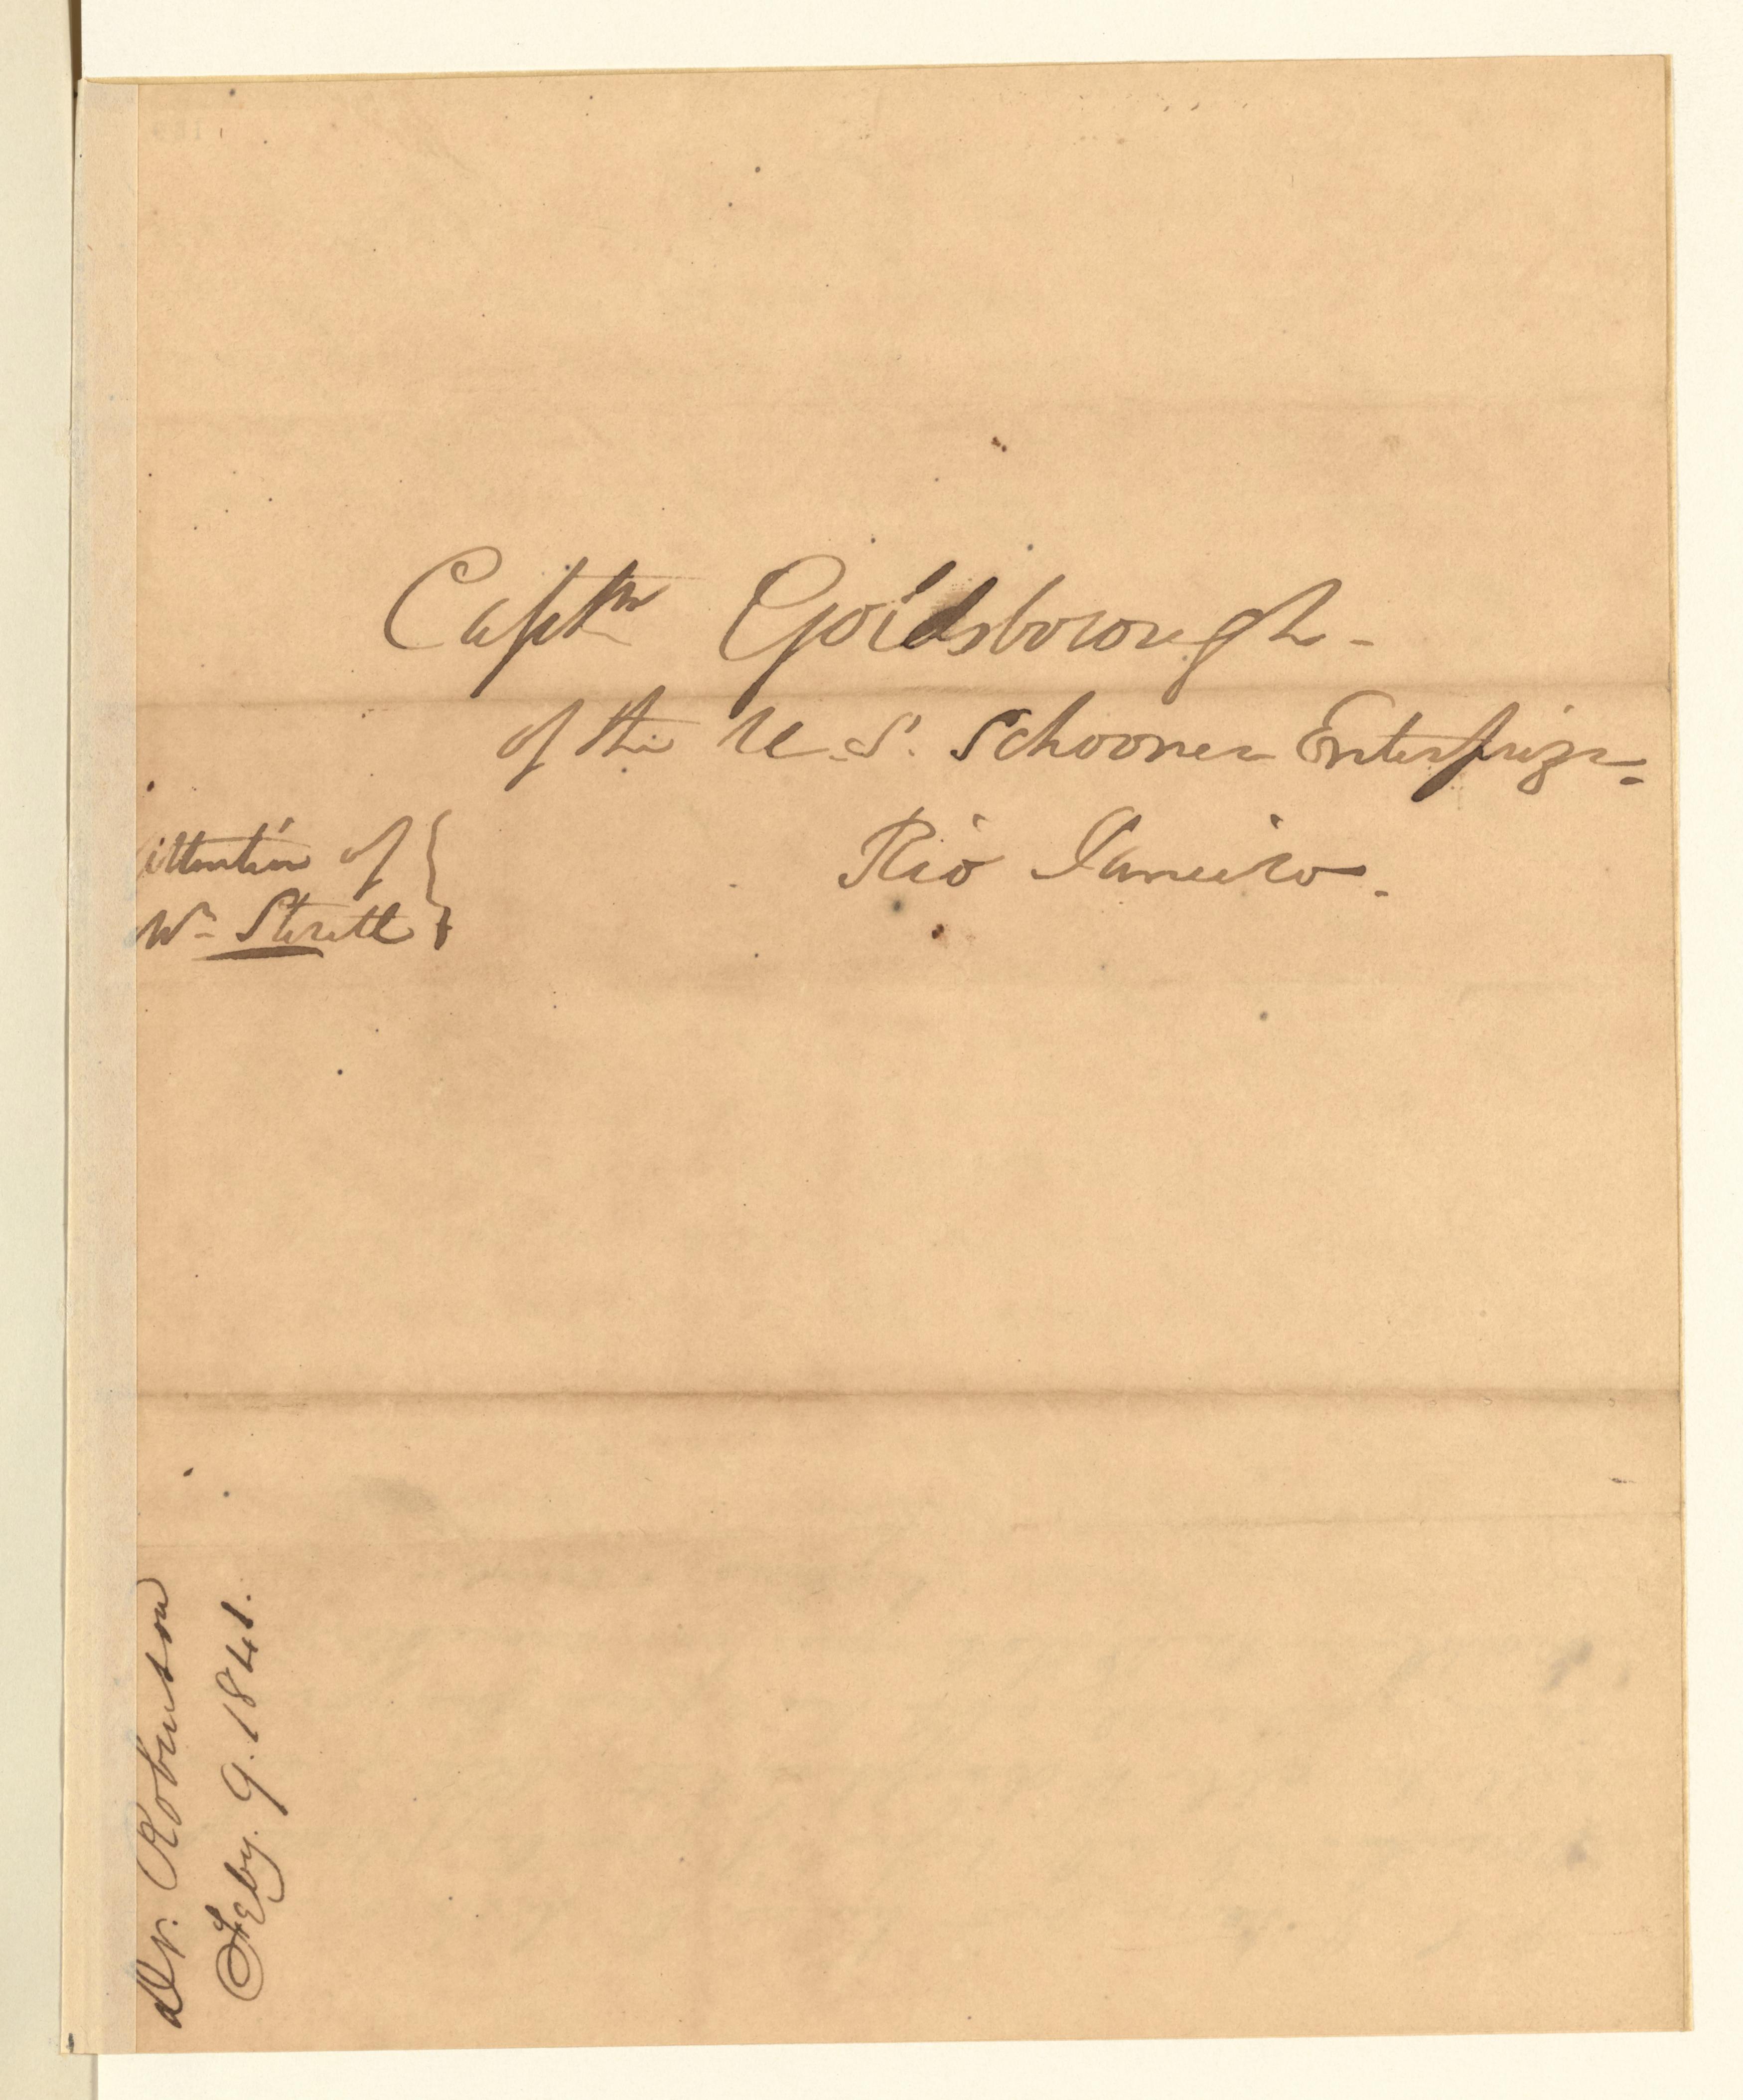 Captn Goldsborough -
of the U.S. Schooner Enterprize -
Rio Janeiro.
Attention of
Wm Sterett
Dr. Robinson
Feby. 9. 1841.